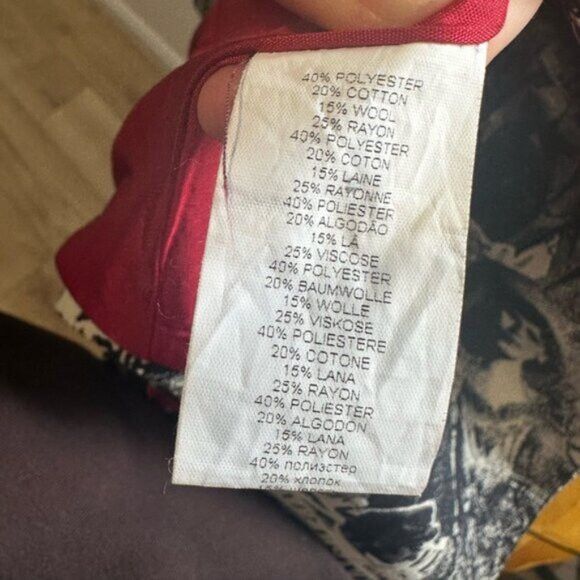 40% POLYESTER
20% COTTON
15% WOOL
25% RAYON
40% POLYESTER
20% COTON
15% LAINE
25% RAYONNE
40% POLIESTER
20% ALGODÃO
15% LÃ
25% VISCOSE
40% POLYESTER
20% BAUMWOLLE
15% WOLLE
25% VISKOSE
40% POLIESTERE
20% COTONE
15% LANA
25% RAYON
40% POLIESTER
20% ALGODON
15% LANA
25% RAYON
40% полиэстер
20% хлопок